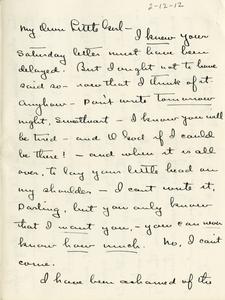 2-12-12
My dear Little Girl -
I knew your
Saturday letter must have been
delayed. But I ought not to have
said so - now that I think of it.
Anyhow - Don't write tomorrow
night, Sweetheart - I know you will
be tired - and I'd if I could
be there! - and when it is all
over, to lay your little head on
my shoulder - I can't write it,
Darling, but you only know
that I want you, - you can never
know how much. No, I can't
come.
I have been ashamed of the